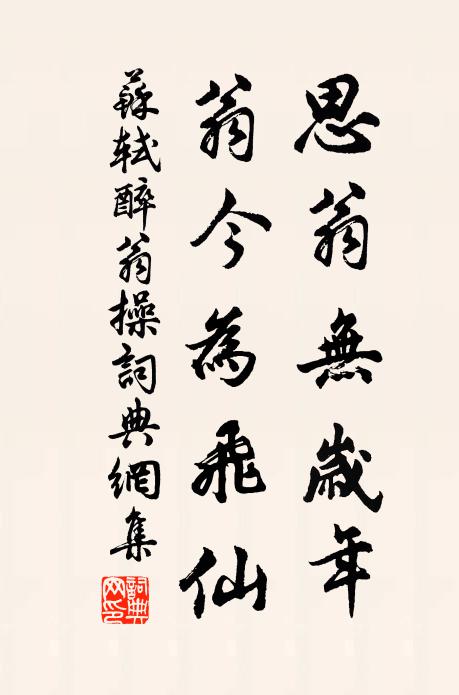 思翁無歲年
翁今為飛仙
蘇軾醉翁操詞典網集
詞典網印